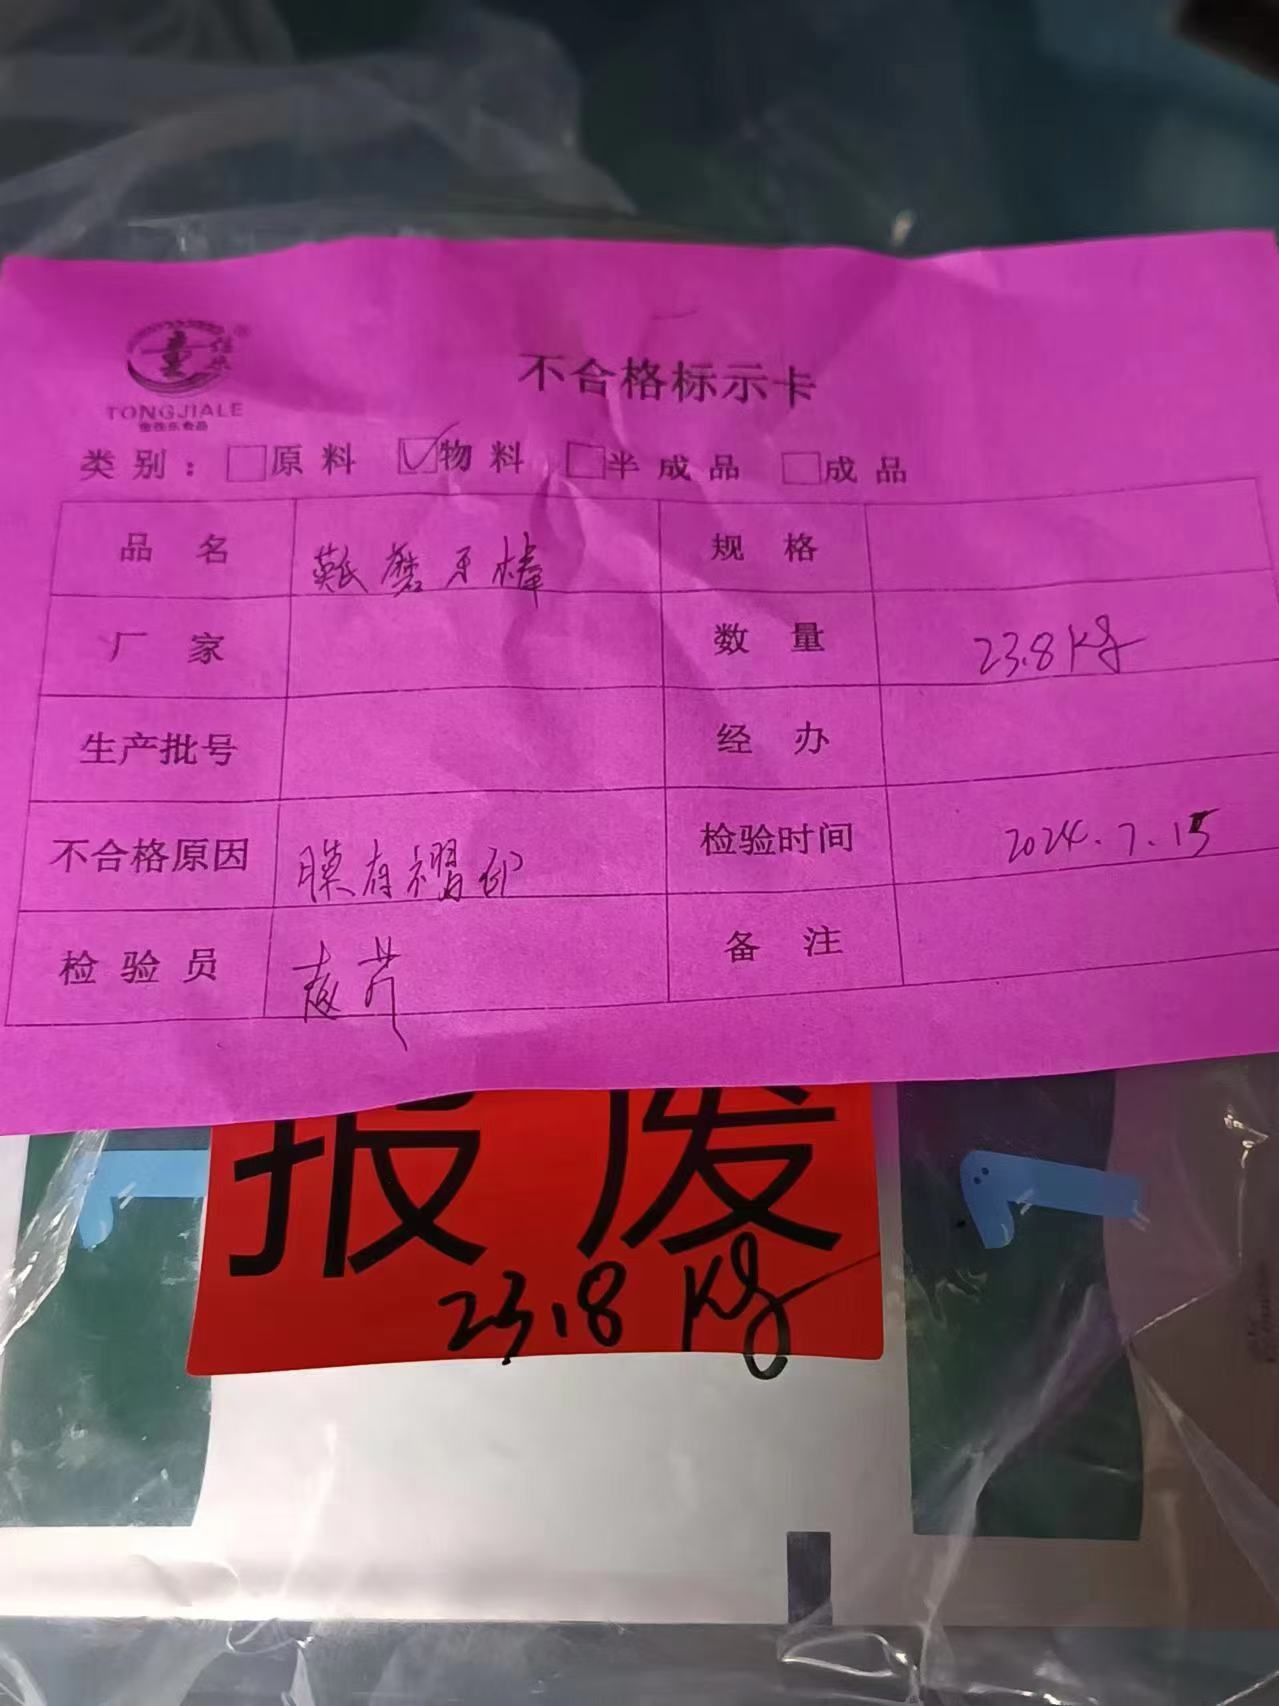 童佳乐®
TONGJIALE
不合格标示卡
类别：□原料 ☑物料 □半成品 □成品
品名 磨牙棒 规格
厂家 数量 23.8kg
生产批号 经办
不合格原因 膜有褶印 检验时间 2024.7.15
检验员 备注
报废
23.8kg